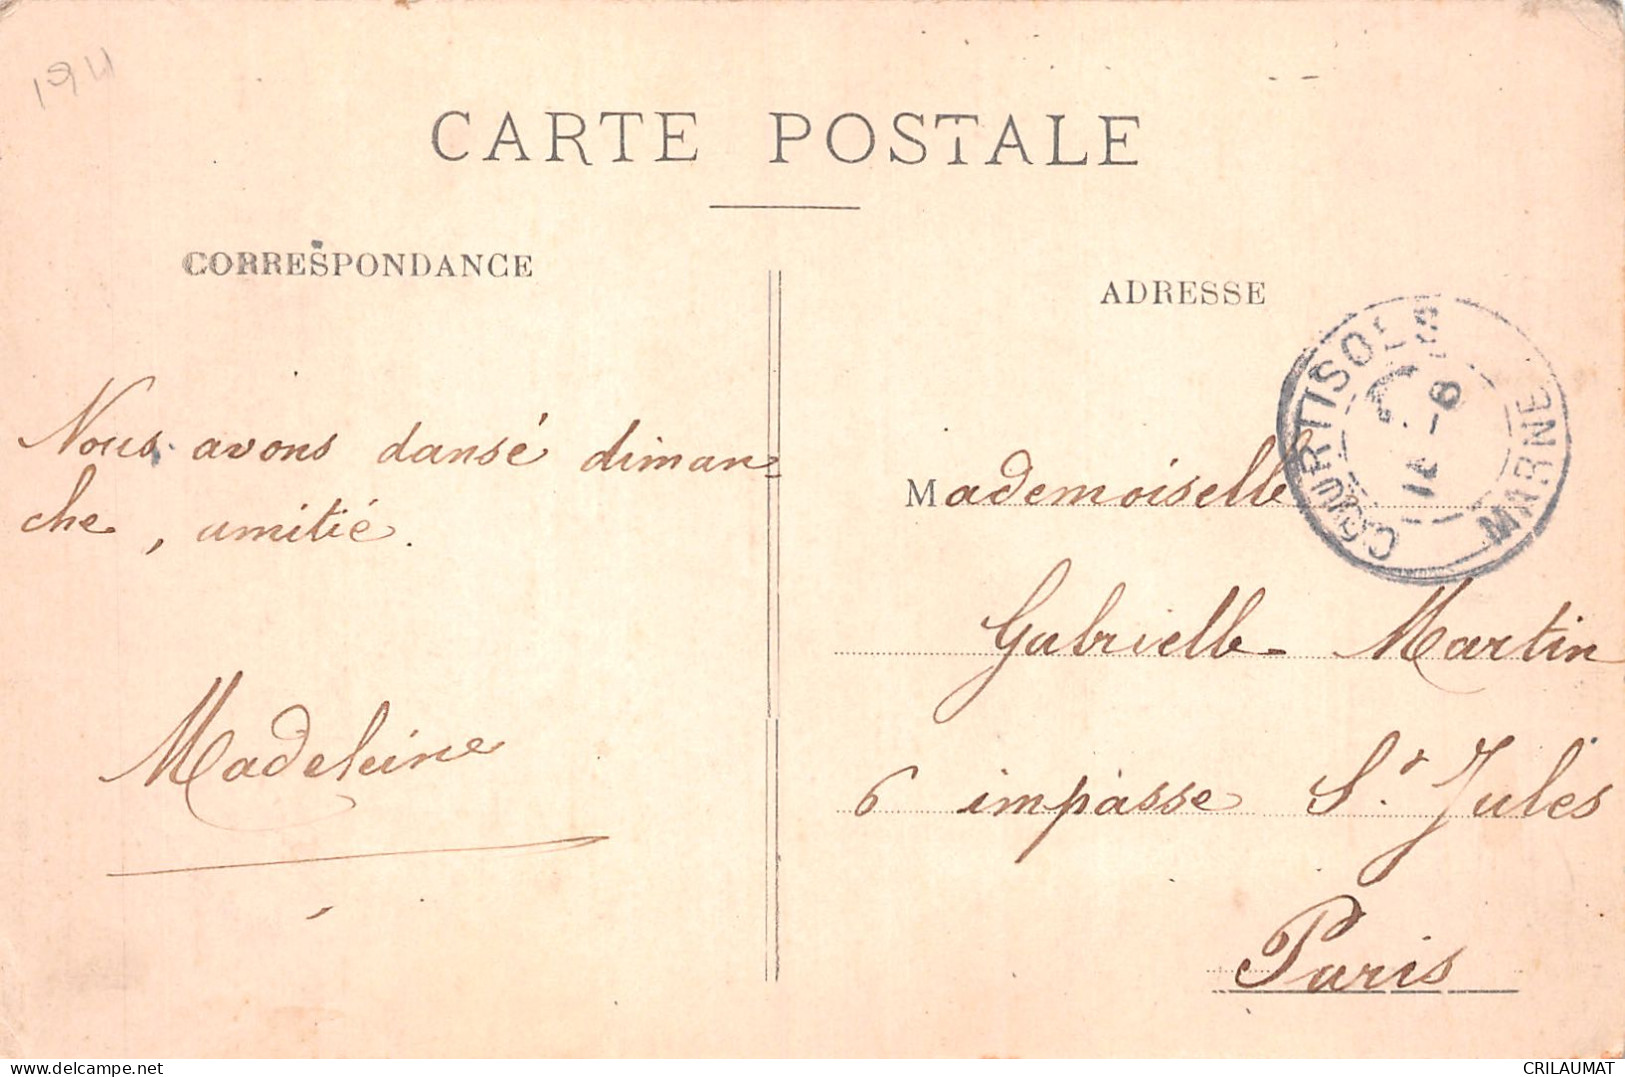 1911
CARTE POSTALE
CORRESPONDANCE
ADRESSE
COURTISOLS
MARNE
Nous avons dansé diman-
che, amitié.
Madeleine
Mademoiselle
Gabrielle Martin
6 impasse St. Jules
Paris
delcampe.net
CRILAUMAT